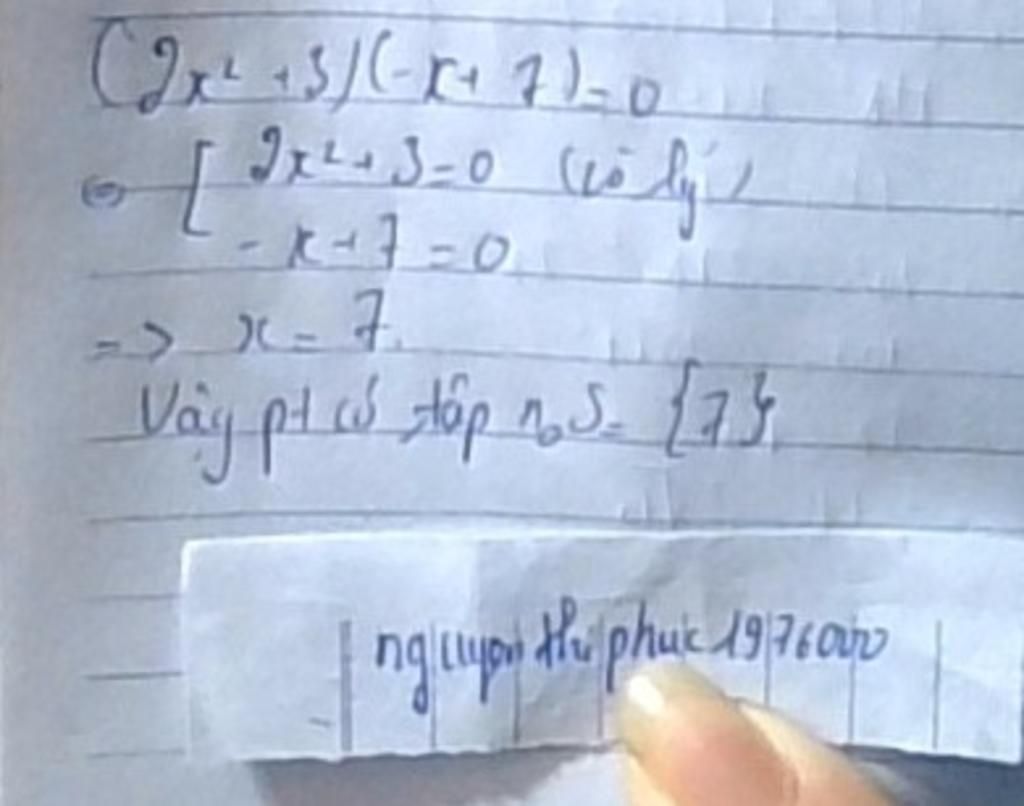 (2x² + 3)(-x + 7) = 0
⇔ [ 2x² + 3 = 0 (vô lý)
- x + 7 = 0
=> x = 7.
Vậy pt có tập n₀ S = {7}
nguyen thi phuc 1976000